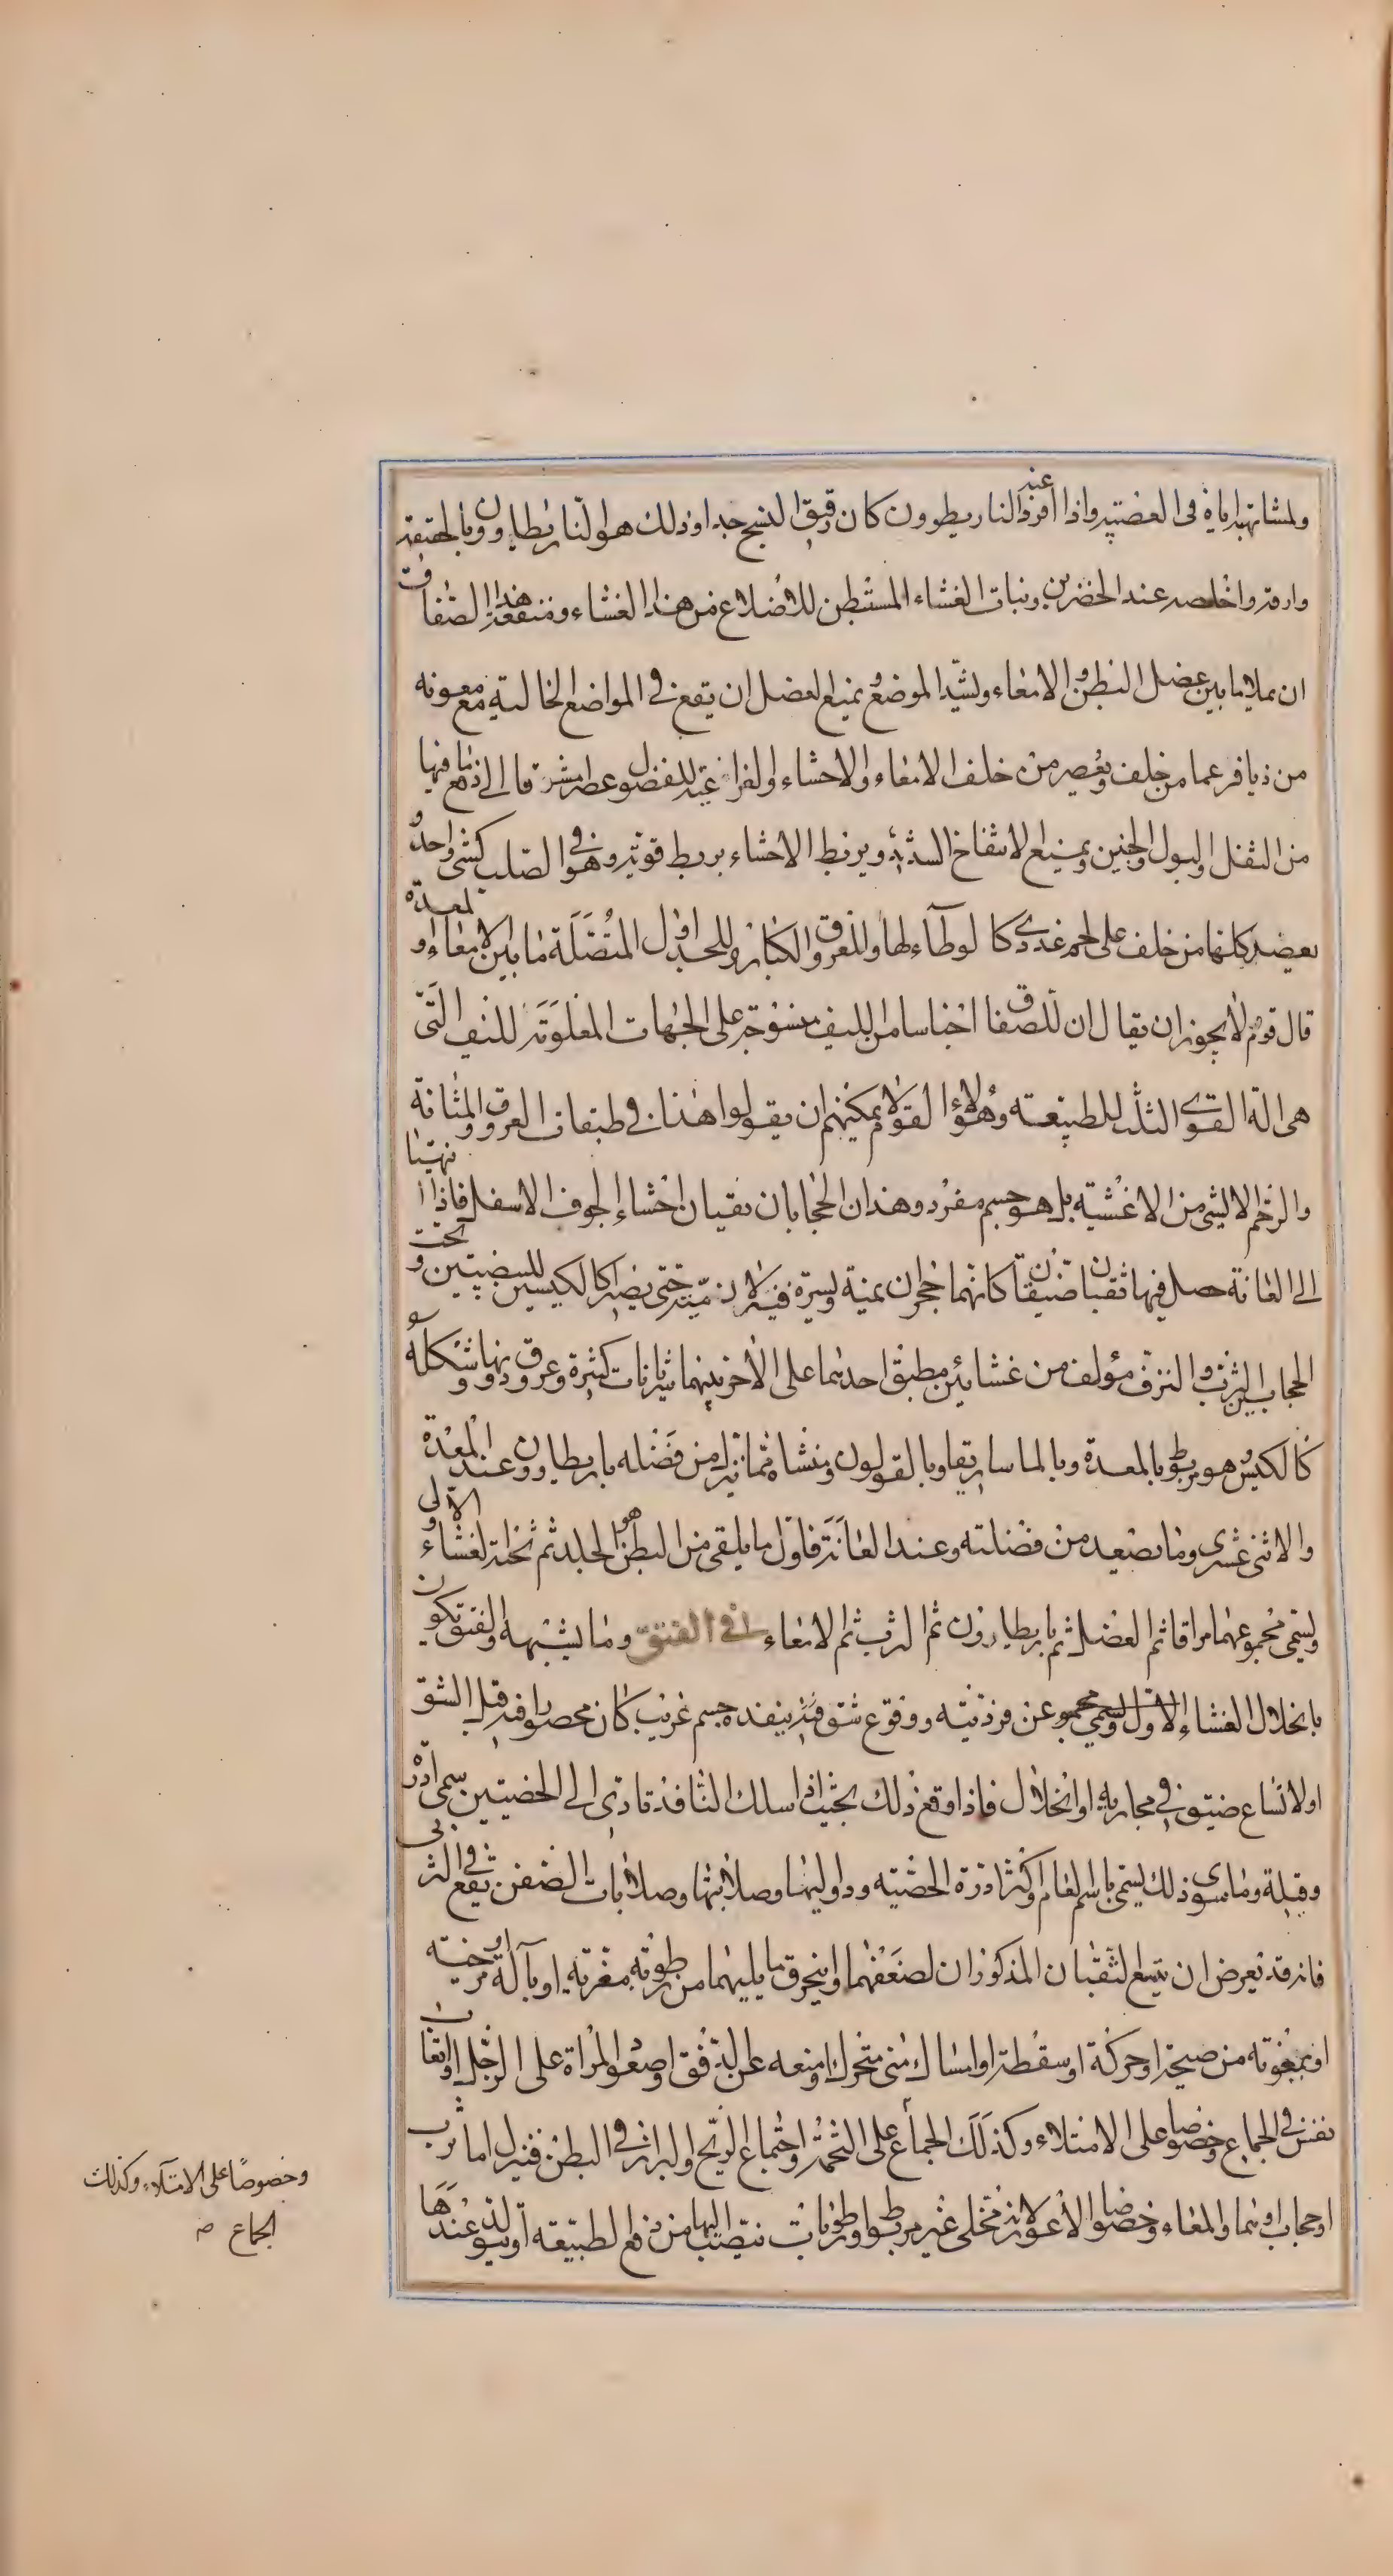 ولمشابهته اياه فى العصبية واذا افرد عند الناريطوون كان رقيق النسج جدا وذلك هو الناريطاون وبالحقيقة
وارقه واخلصه عند الخضرين ونبات الغشاء المستبطن للاضلاع من هذا الغشاء ومنفعة هذا الصفاق
ان يملا ما بين عضل البطن والامعاء ويشد الموضع ويمنع العضل ان يقع فى المواضع الخالية مع معونه
من ديافرغما من خلف ويعصر من خلف الامعاء والاحشاء والفراغية للفضل وعصرا مشرقا الى دفع ما فيها
من الثفل والبول والجنين ويمنع الانتفاخ الشديد ويربط الاحشاء بربط قوية وهو فى الصلب كشى واحد و
بعضد كلها من خلف على لحم غددى كالوطآء لها وللعروق الكبار وللجداول المتصلة ما بين الامعاء والمعدة
قال قوم لا يجوز ان يقال ان للصفاق اجناسا من الليف منسوجة على الجهات المعلومة للليف التى
هى الة القوى الثلث للطبيعة وهؤلاء القوم لا يمكنهم ان يقولوا هذا فى طبقات العروق والمثانة
والرحم لا ليشى من الاغشية بل هو جسم مفرد وهذان الحجابان يقيان احشاء الجوف الاسفل فاذا انتهيا
الى العانة حصل فيها ثقبان ضيقان كانهما حجران يمنة ويسرة فينزلان منه حتى يصيرا كالكيسين للبيضتين وتحت
الحجابين الثرب والنزف مؤلف من غشائين مطبق احدهما على الاخر بينهما شريانات كثيرة وعروق دونها وشكله
كالكيس وهو مربوط بالمعدة وبالماساريقا وبالقولون ومنشاه مما ينزل من فضله باريطاوون عند المعدة
والاثنى عشرى وما يصعد من فضلته وعند العانة فاول ما يلقى من البطن هو الجلد ثم تحته الغشاء الاول و
يسمى مجموعهما مراقا ثم العضل ثم باريطارون ثم الثرب ثم الامعاء فى الفتق وما يشبهه والفتق يكون
بانحلال الغشاء الاول ويسمى مجموع عن فرديته ووقوع شق فيه ينفده جسم غريب كان محصورا فيه قبل الشق
او لاتساع ضيق فى مجاريه او انحلال فاذا وقع ذلك بحيث اذا سلك النافذ تادى الى الخصيتين سمى ادرة
وقيلة وما سوى ذلك يسمى باسم العام واكثر ادرة الخصية ودواليها وصلابتها وصلابات الصفن تقع فى الثربى
فانه قد يعرض ان يتسع الثقبان المذكوران لضعفهما او ينخرق ما يليهما من رطوبة مغرية او بآلة مرخية
او بمعونة من صيحة او حركة او سقطة او امساك منى متحرك ومنعه عن الدفق او صعود المراة على الرجل او اتعاب
نفس فى الجماع وخصوصا على الامتلاء وكذلك الجماع على التخمة واجتماع الريح والبراز فى البطن فينزل اما ثرب
او حجاب او هما والمعاء وخصوصا الاعور لانه مخلى غير مربوط او رطوبات تنصب اليها من دفع الطبيعة او تتولد عندها
وخصوصًا على الامتلآء وكذلك
الجماع صـ